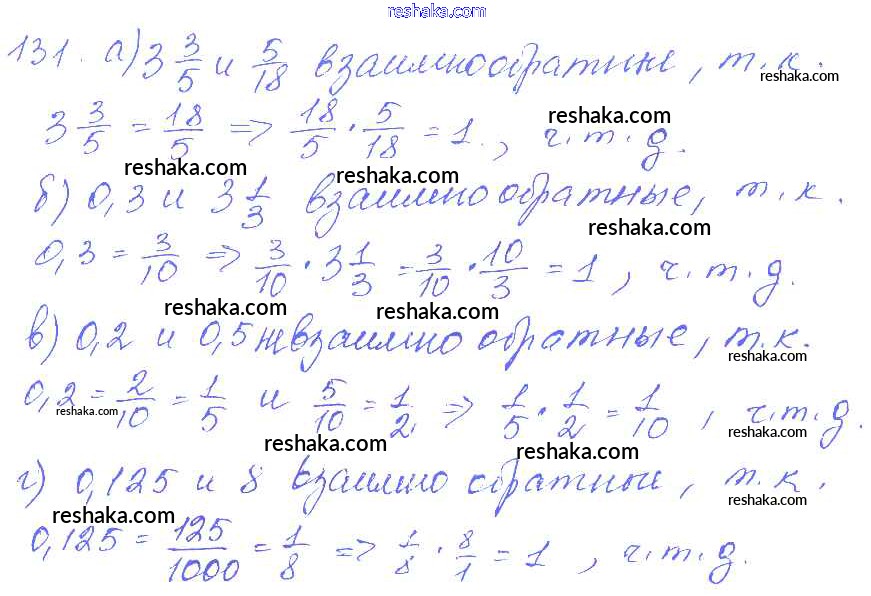 reshaka.com
131. а) 3 3/5 и 5/18 взаимно обратные, т.к.
reshaka.com
3 3/5 = 18/5 => 18/5 · 5/18 = 1., ч.т.д.
reshaka.com
reshaka.com reshaka.com
б) 0,3 и 3 1/3 взаимно обратные, т.к.
reshaka.com
0,3 = 3/10 => 3/10 · 3 1/3 = 3/10 · 10/3 = 1, ч.т.д.
reshaka.com reshaka.com
в) 0,2 и 0,5 не взаимно обратные, т.к.
reshaka.com
0,2 = 2/10 = 1/5 и 5/10 = 1/2 => 1/5 · 1/2 = 1/10, ч.т.д.
reshaka.com reshaka.com
reshaka.com reshaka.com
г) 0,125 и 8 взаимно обратные, т.к.
reshaka.com
reshaka.com
0,125 = 125/1000 = 1/8 => 1/8 · 8/1 = 1, ч.т.д.